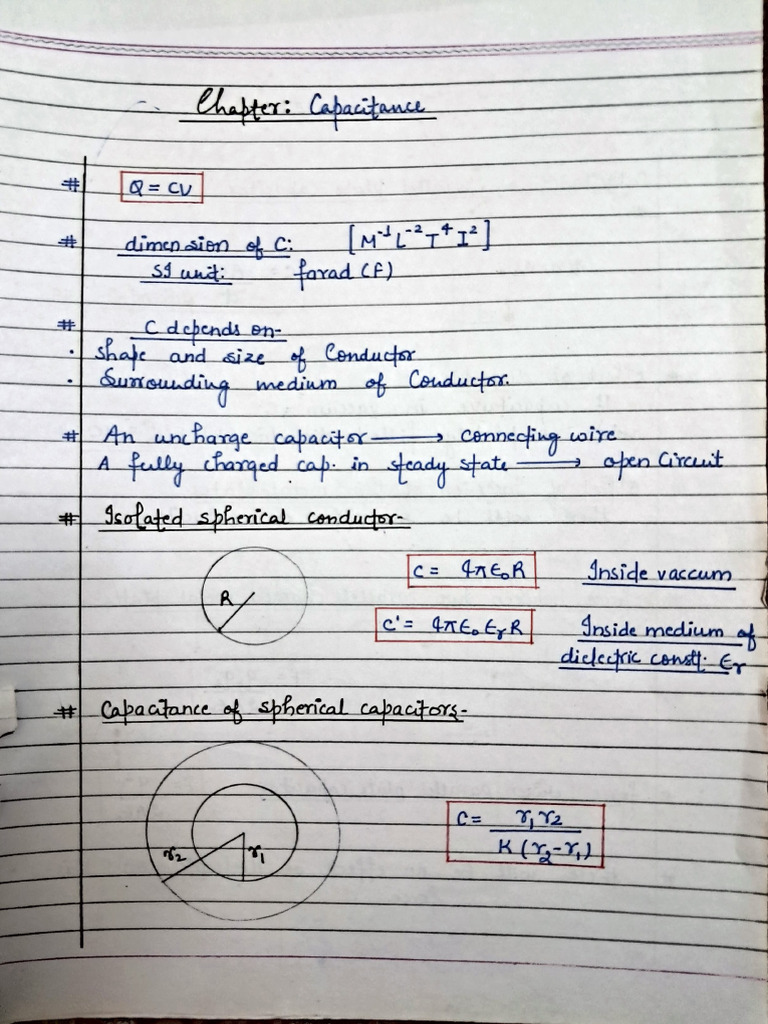 Chapter: Capacitance
# Q = CV
# dimension of C: [M⁻¹ L⁻² T⁴ I²]
SI unit: farad (F)
# C depends on-
· shape and size of Conductor
· Surrounding medium of Conductor.
# An uncharge capacitor ⟶ connecting wire
A fully charged cap. in steady state ⟶ open Circuit
# Isolated spherical conductor-
R
C = 4πε₀R Inside vaccum
C' = 4πε₀εᵣR Inside medium of
dielectric constt. εᵣ
# Capacitance of spherical capacitors-
r₂ r₁
C = r₁r₂ / K(r₂-r₁)